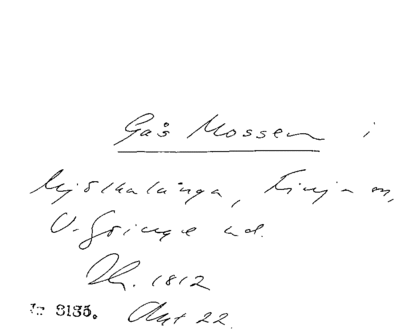 Gås Mossen i
Mjölkalånga, Finja sn,
V. Göinge hd.
Th. 1812
In 3135. Akt 22.